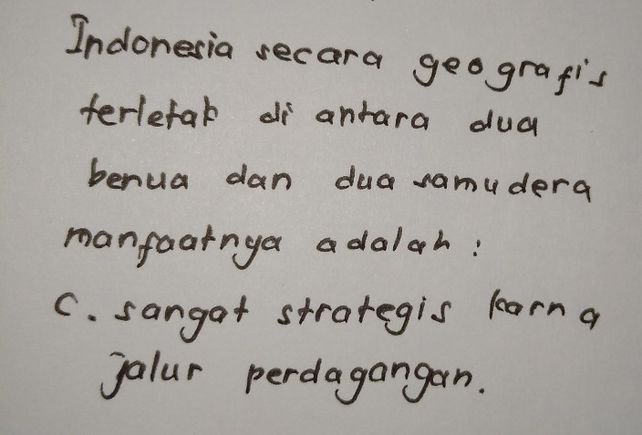 Indonesia secara geografis
terletak di antara dua
benua dan dua samudera
manfaatnya adalah :
C. sangat strategis karna
jalur perdagangan.